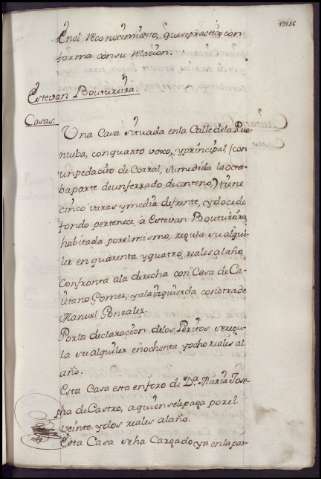 En el reconocimiento, que se practicó con
forma con su relacion.
Estevan Boutureira.
Casas.
Una Casa situada en la Calle de la
con quarto vaxo, y principal (con
un pedacito de Corral, su medida la octa-
ba parte de un ferrado de centeno) tiene
cinco varas y media de frente, y doce de
fondo pertenece à Estevan Boutureira,
habitada por el mismo, regula su alqui-
ler en quarenta y quatro reales al año,
Confronta ala derecha con Casa de Ca-
yetano Gomez, y ala izquierda con otra de
Manuel Gonzalez.
Por la declaracion de los Peritos se regu-
la su alquiler en ochenta y ocho reales al
año.
Esta Casa esta en foro de D.ª Maria Jose-
pha de Castro, a quien se le paga por el
veinte y dos reales al año.
Esta Casa se ha Cargado ya en la par-